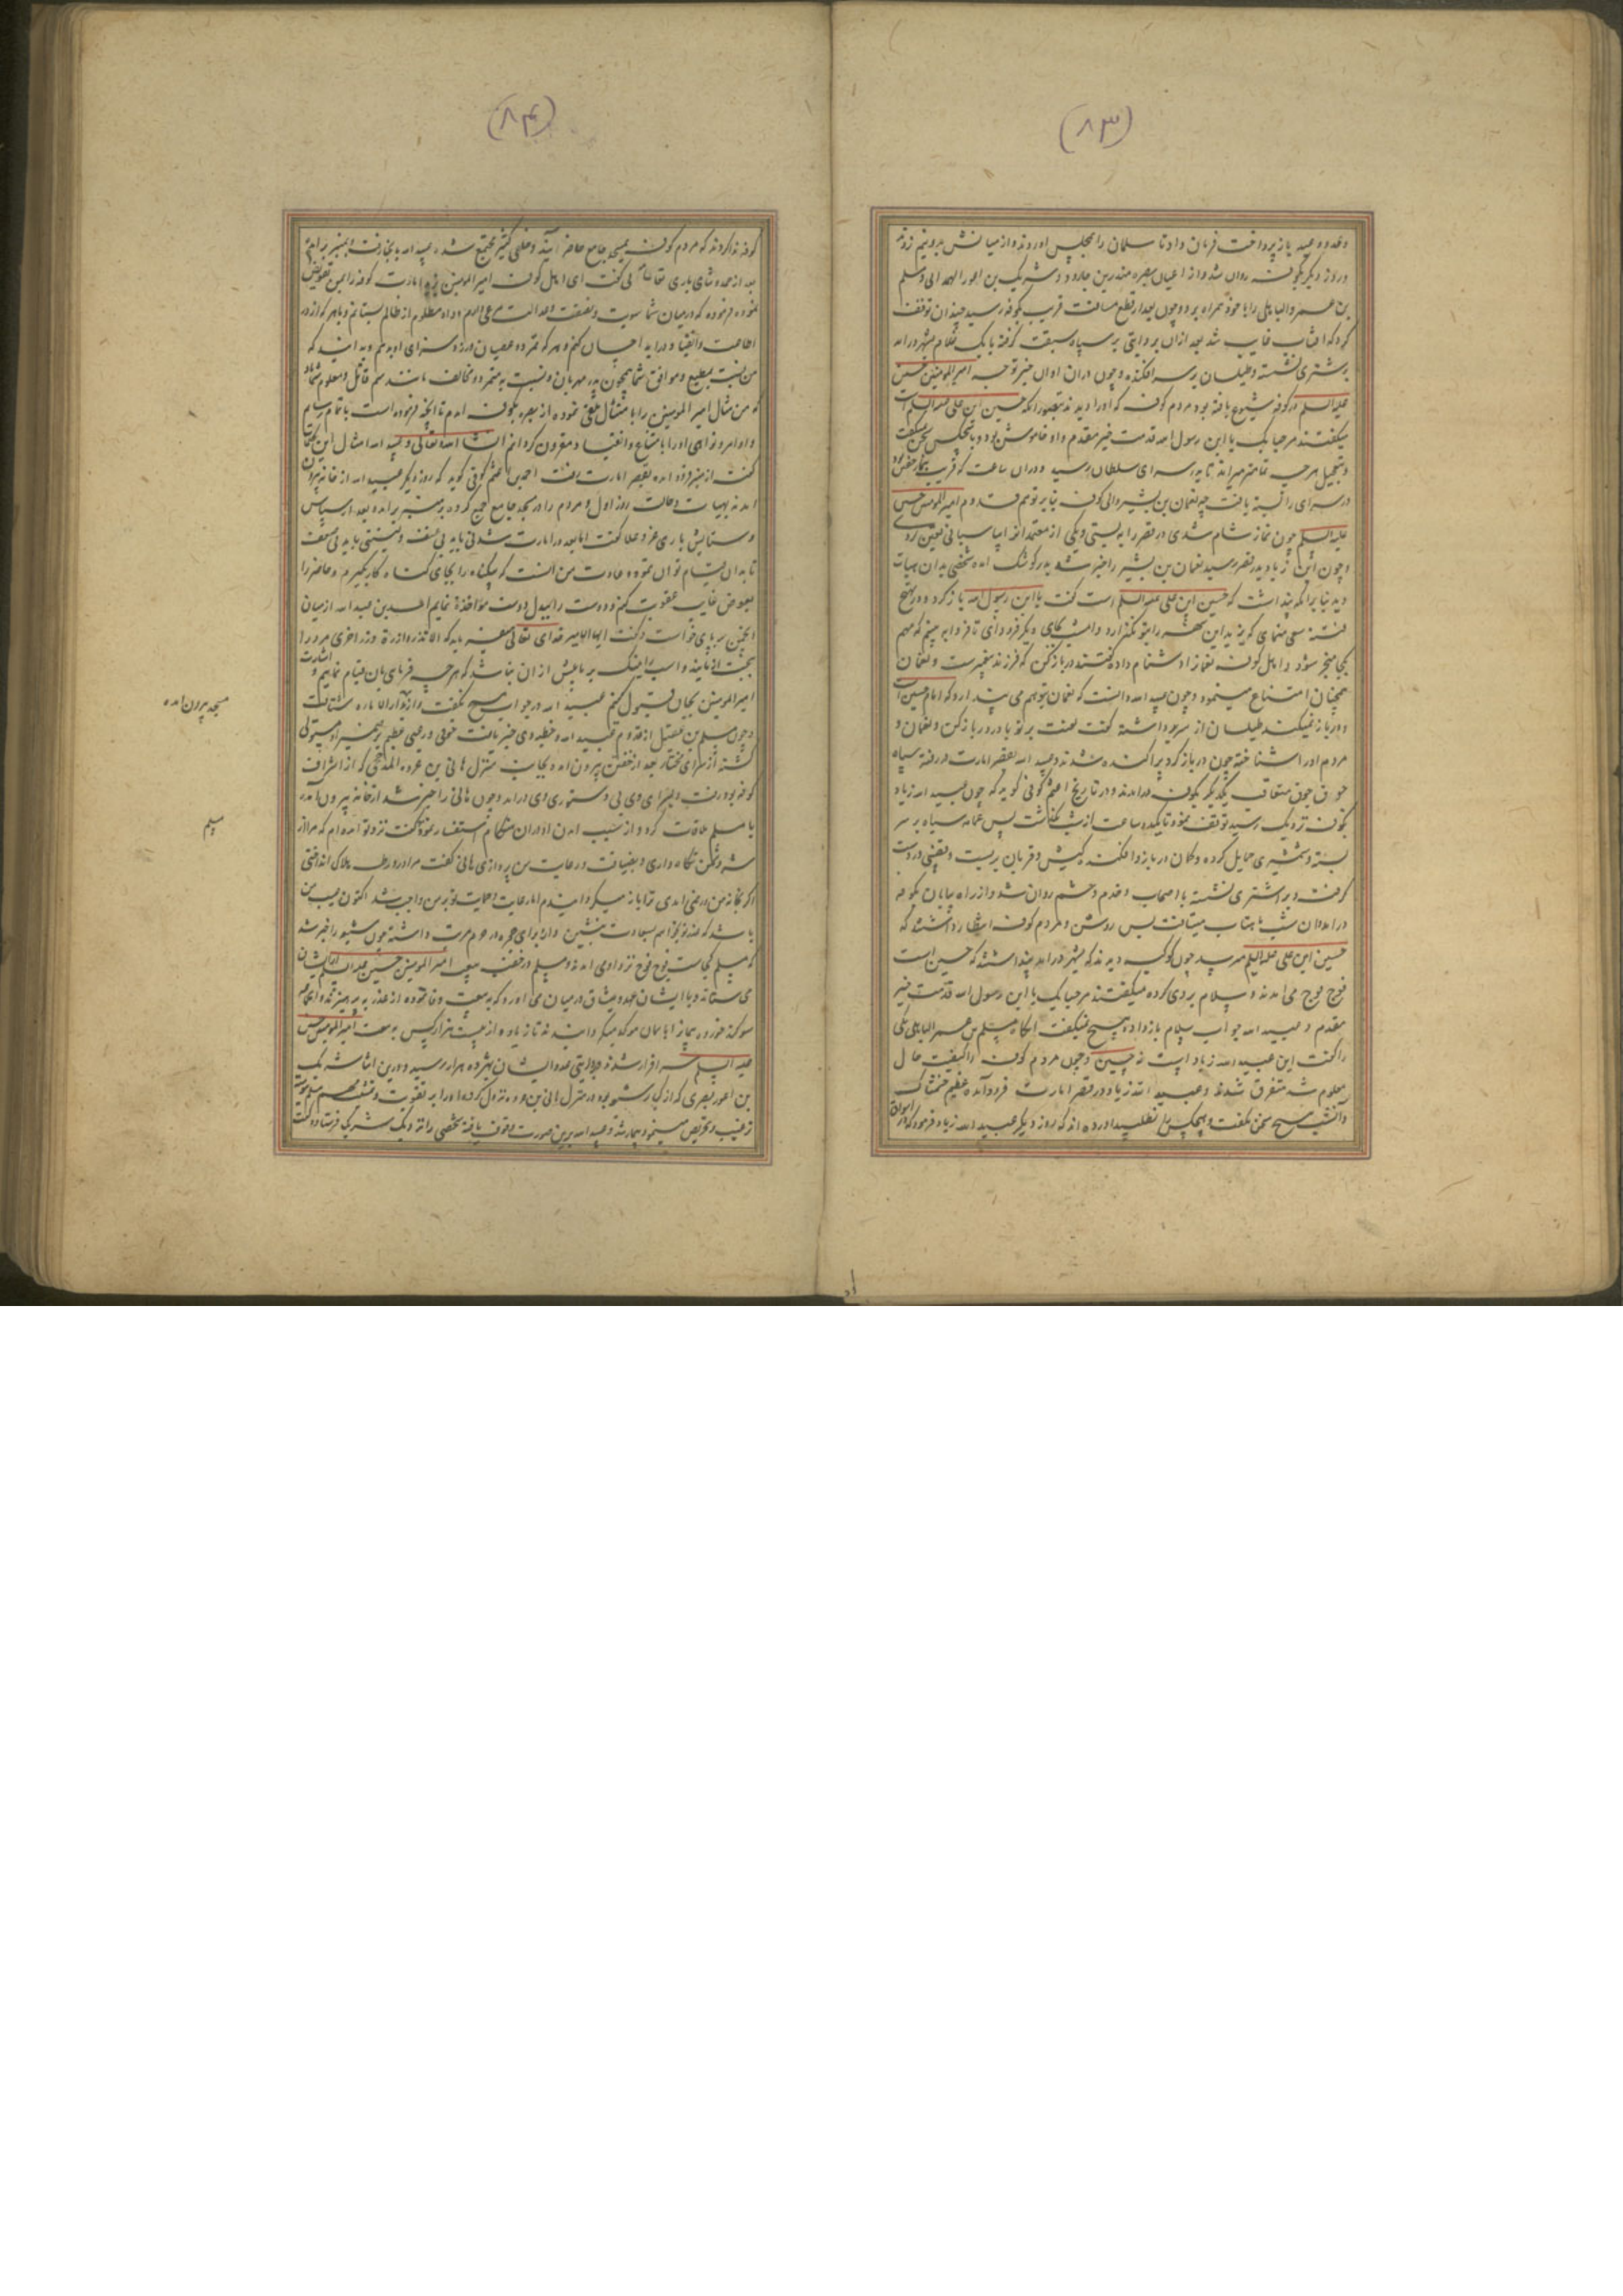 (٨٣)
وعده و وعید باز پرداخت فرمان داد تا سلمان را بمجلس آوردند و از میانش بدو نیم زدند
و روز دیگر بکوفه روان شد و از اعیان بصره منذر بن جارود و شریک بن اعور الهمدانی و مسلم
بن عمرو الباهلی را با خود همراه برد و چون بعد از قطع مسافت قریب بکوفه رسید چندان توقف
کرد که آفتاب غایب شد بعد ازان بروایتی بر سپاه سبقت گرفته با یک غلام بشهر درآمد
بر شتری نشسته و طیلسان بر سر افکنده و چون دران اوان خبر توجه امیر المومنین حسین
علیه السلم در کوفه شیوع یافته بود مردم کوفه که او را دیدند بتصور انکه حسین ابن علی علیه السلم است
میکفتند مرحبا بک یا ابن رسول الله قدمت خیر مقدم و او خاموش بود و با هیچکس سخن نمیکفت
و بتعجیل هر چه تمامتر میراند تا بدر سرای سلطان رسید و دران ساعت که قریب
در سرای را بسته یافت چه نعمان بن بشیر والی کوفه بنا بر توهم قدوم امیر المومنین حسین
علیه السلم چون نماز شام شدی در قصر را به بستی و یکی از معتمدان را بپاسبانی تعیین کردی
و چون ابن زیاد بدر قصر رسید نعمان بن بشیر را خبر شد بر کوشک آمده شخصی بدان هیات
دید بنا بر انکه پنداشت که حسین ابن علی علیه السلم است کفت یا ابن رسول الله باز کرد و در تهییج
فتنه سعی منمای که یزید این شهر را بتو نکذارد و امشب بجای دیکر فرود آی تا فردا ببینیم که مهم
بکجا منجر شود و اهل کوفه نعمان را دشنام داده کفتند در باز کن که فرزند پیغمبر است و نعمان
همچنان امتناع مینمود و چون عبید الله دانست که نعمان بتوهم می پندارد که امام حسین است
و در باز نمیکند طیلسان از سر برداشته کفت لعنت بر تو باد در باز کن و نعمان و
مردم او را شناخته چون در باز کرد پراکنده شدند و عبید الله بقصر امارت در رفته سپاه
جوق جوق متعاقب یکدیکر بکوفه درآمدند و در تاریخ اعثم کوفی کوید که چون عبید الله زیاد
بکوفه نزدیک رسید توقف نمود تا یکدو ساعت از شب بکذشت پس عمامه سیاه بر سر
بسته و شمشیری حمایل کرده و کمان در بازو افکنده کیش و قربان بربست و قضیبی در دست
کرفت و بر اشتری نشسته با اصحاب و خدم و حشم روان شد و از راه بیابان بکوفه
درآمد و ان شب ماهتاب میتافت بس روشن و مردم کوفه انتظار داشتند که
حسین ابن علی علیه السلم میرسد چون کوکبه دیدند که بشهر درآمد پنداشتند که حسین است
فوج فوج می آمدند و سلام بر وی کرده میکفتند مرحبا بک یا ابن رسول الله قدمت خیر
مقدم و عبید الله جواب سلام باز داده هیچ نمیکفت انکاه مسلم بن عمرو الباهلی
را کفت این عبید الله زیاد است نه حسین و چون مردم کوفه را کیفیت حال
معلوم شد متفرق شدند و عبید الله زیاد در قصر امارت فرود آمده عظیم خشمناک
و انشب هیچ سخن نکفت و هیچکس را نطلبید آورده اند که روز دیکر عبید الله زیاد فرمود که در اسواق
(٨۴)
کوفه ندا کردند که مردم کوفه بمسجد جامع حاضر آیند و خلقی کثیر مجتمع شده عبید الله بانجا رفت و بمنبر برآمد
بعد از حمد و ثنای باری تعالی کفت ای اهل کوفه امیر المومنین یزید امارت کوفه را بمن تفویض
نموده و فرموده که در میان شما بسویت و نصفت و عدالت مرعی دارم و داد مظلوم از ظالم بستانم و با هر که از در
اطاعت و انقیاد درآید احسان کنم و هر که تمرد و عصیان ورزد سزای او بدهم و بدانید که
من نسبت بمطیع و موافق شما همچون پدر مهربان و نسبت به متمرد و مخالف مانند سم قاتل و معلوم شما باد
که من مثال امیر المومنین را بامتثال تلقی نموده از بصره بکوفه آمدم تا انچه فرموده است باتمام رسانم
و اوامر و نواهی او را باتباع و انقیاد مقرون کردانم انشاء الله تعالی و عبید الله امثال این کلمات
کفت از منبر فرود آمده بقصر امارت رفت احمد بن اعثم کوفی کوید که روز دیکر عبید الله از خانه بیرون
آمد نه بهیات و حالت روز اول و مردم را در مسجد جامع جمع کرده بر منبر برآمده بعد از سپاس
و ستایش باری عز و علا کفت اما بعد در امارت شدتی باید بی عنف و لینتی باید بی ضعف
تا بدان قیام توان نمود و عادت من انست که بیکناه را بجای کناه کار بکیرم و حاضر را
بعوض غایب عقوبت کنم و دوست را ببدل دوست مواخذه نمایم اسد بن عبد الله از میان
انجمن بر پای خواست و کفت ایها الامیر خدای تعالی میفرماید که الا تزر وازرة وزر اخری مرد را
امیر المومنین بجان قبول کنیم عبید الله در جواب هیچ نکفت و از منبر فرود آمده بدار الاماره شتافت
و چون مسلم بن عقیل از قدوم عبید الله و خطبه وی خبر یافت خوفی و رعبی عظیم بر ضمیر او مستولی
کشته از سرای مختار بعد از خفتن بیرون آمده بجانب منزل هانی بن عروه المذحجی که از اشراف
کوفه بود رفت و بسرای وی بی دستوری وی درآمد و چون هانی را خبر شد از خانه بیرون آمده
با مسلم ملاقات کرد و از سبب آمدن او دران هنکام استفسار نمود کفت نزد تو آمده ام که مرا از
شر دشمن نکاه داری و بضیافت و رعایت من پردازی هانی کفت مرا در ورطه هلاک انداختی
اکر بخانه من در نمی آمدی ترا باز میکردانیدم اما رعایت و حمایت تو بر من واجب شد اکنون
که مسلم کجاست فوج فوج نزد او می آمدند و مسلم در خفیه بیعت امیر المومنین حسین علیه السلم از ایشان
می ستاند و با ایشان عهد و میثاق در میان می آورد که به بیعت وفا نموده از غدر بپرهیزند
علیه السلم سرافراز شدند و بروایتی عدد ایشان بهژده هزار رسید و درین اثنا شریک
بن اعور بصری که از کبار شیعه بود در منزل هانی بن عروه نزول کرده او را بر تقویت و تمشیت مهم مسلم
ترغیب و تحریص مینمود و بیمار شد و عبید الله برین صورت وقوف یافته شخصی را نزدیک شریک فرستاد و کفت
مسجد بیرون آمده
مسلم